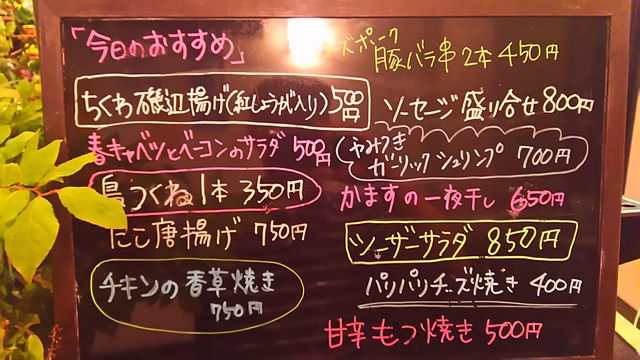 「今日のおすすめ」
ちくわ磯辺揚げ(紅しょうが入り)500円
春キャベツとベーコンのサラダ 500円
鳥つくね1本 350円
たこ唐揚げ 750円
チキンの香草焼き
750円
ーズポーク
豚バラ串2本450円
ソーセージ盛り合せ800円
やみつき
ガーリックシュリンプ 700円
かますの一夜干し 650円
シーザーサラダ 850円
パリパリチーズ焼き 400円
甘辛もつ焼き 500円